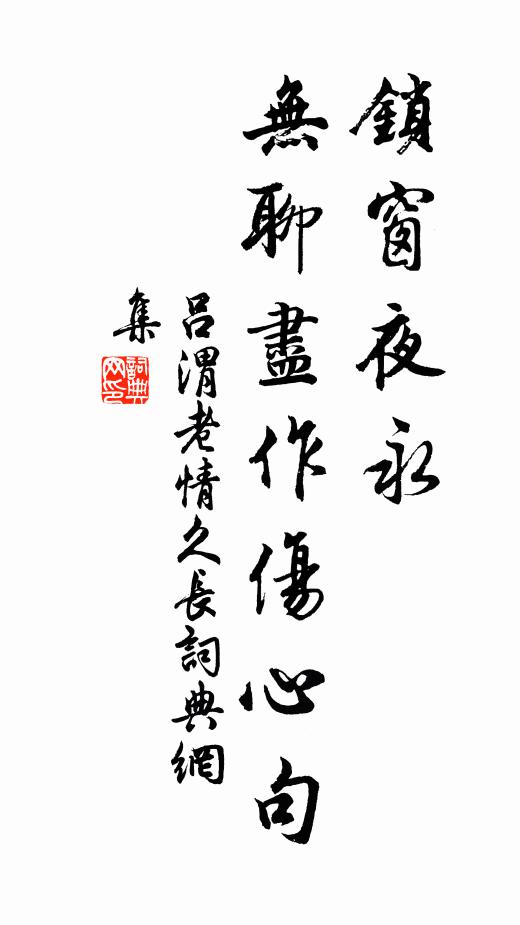 鎖窗夜永
無聊盡作傷心句
呂渭老情久長詞典網
集
詞典
网印